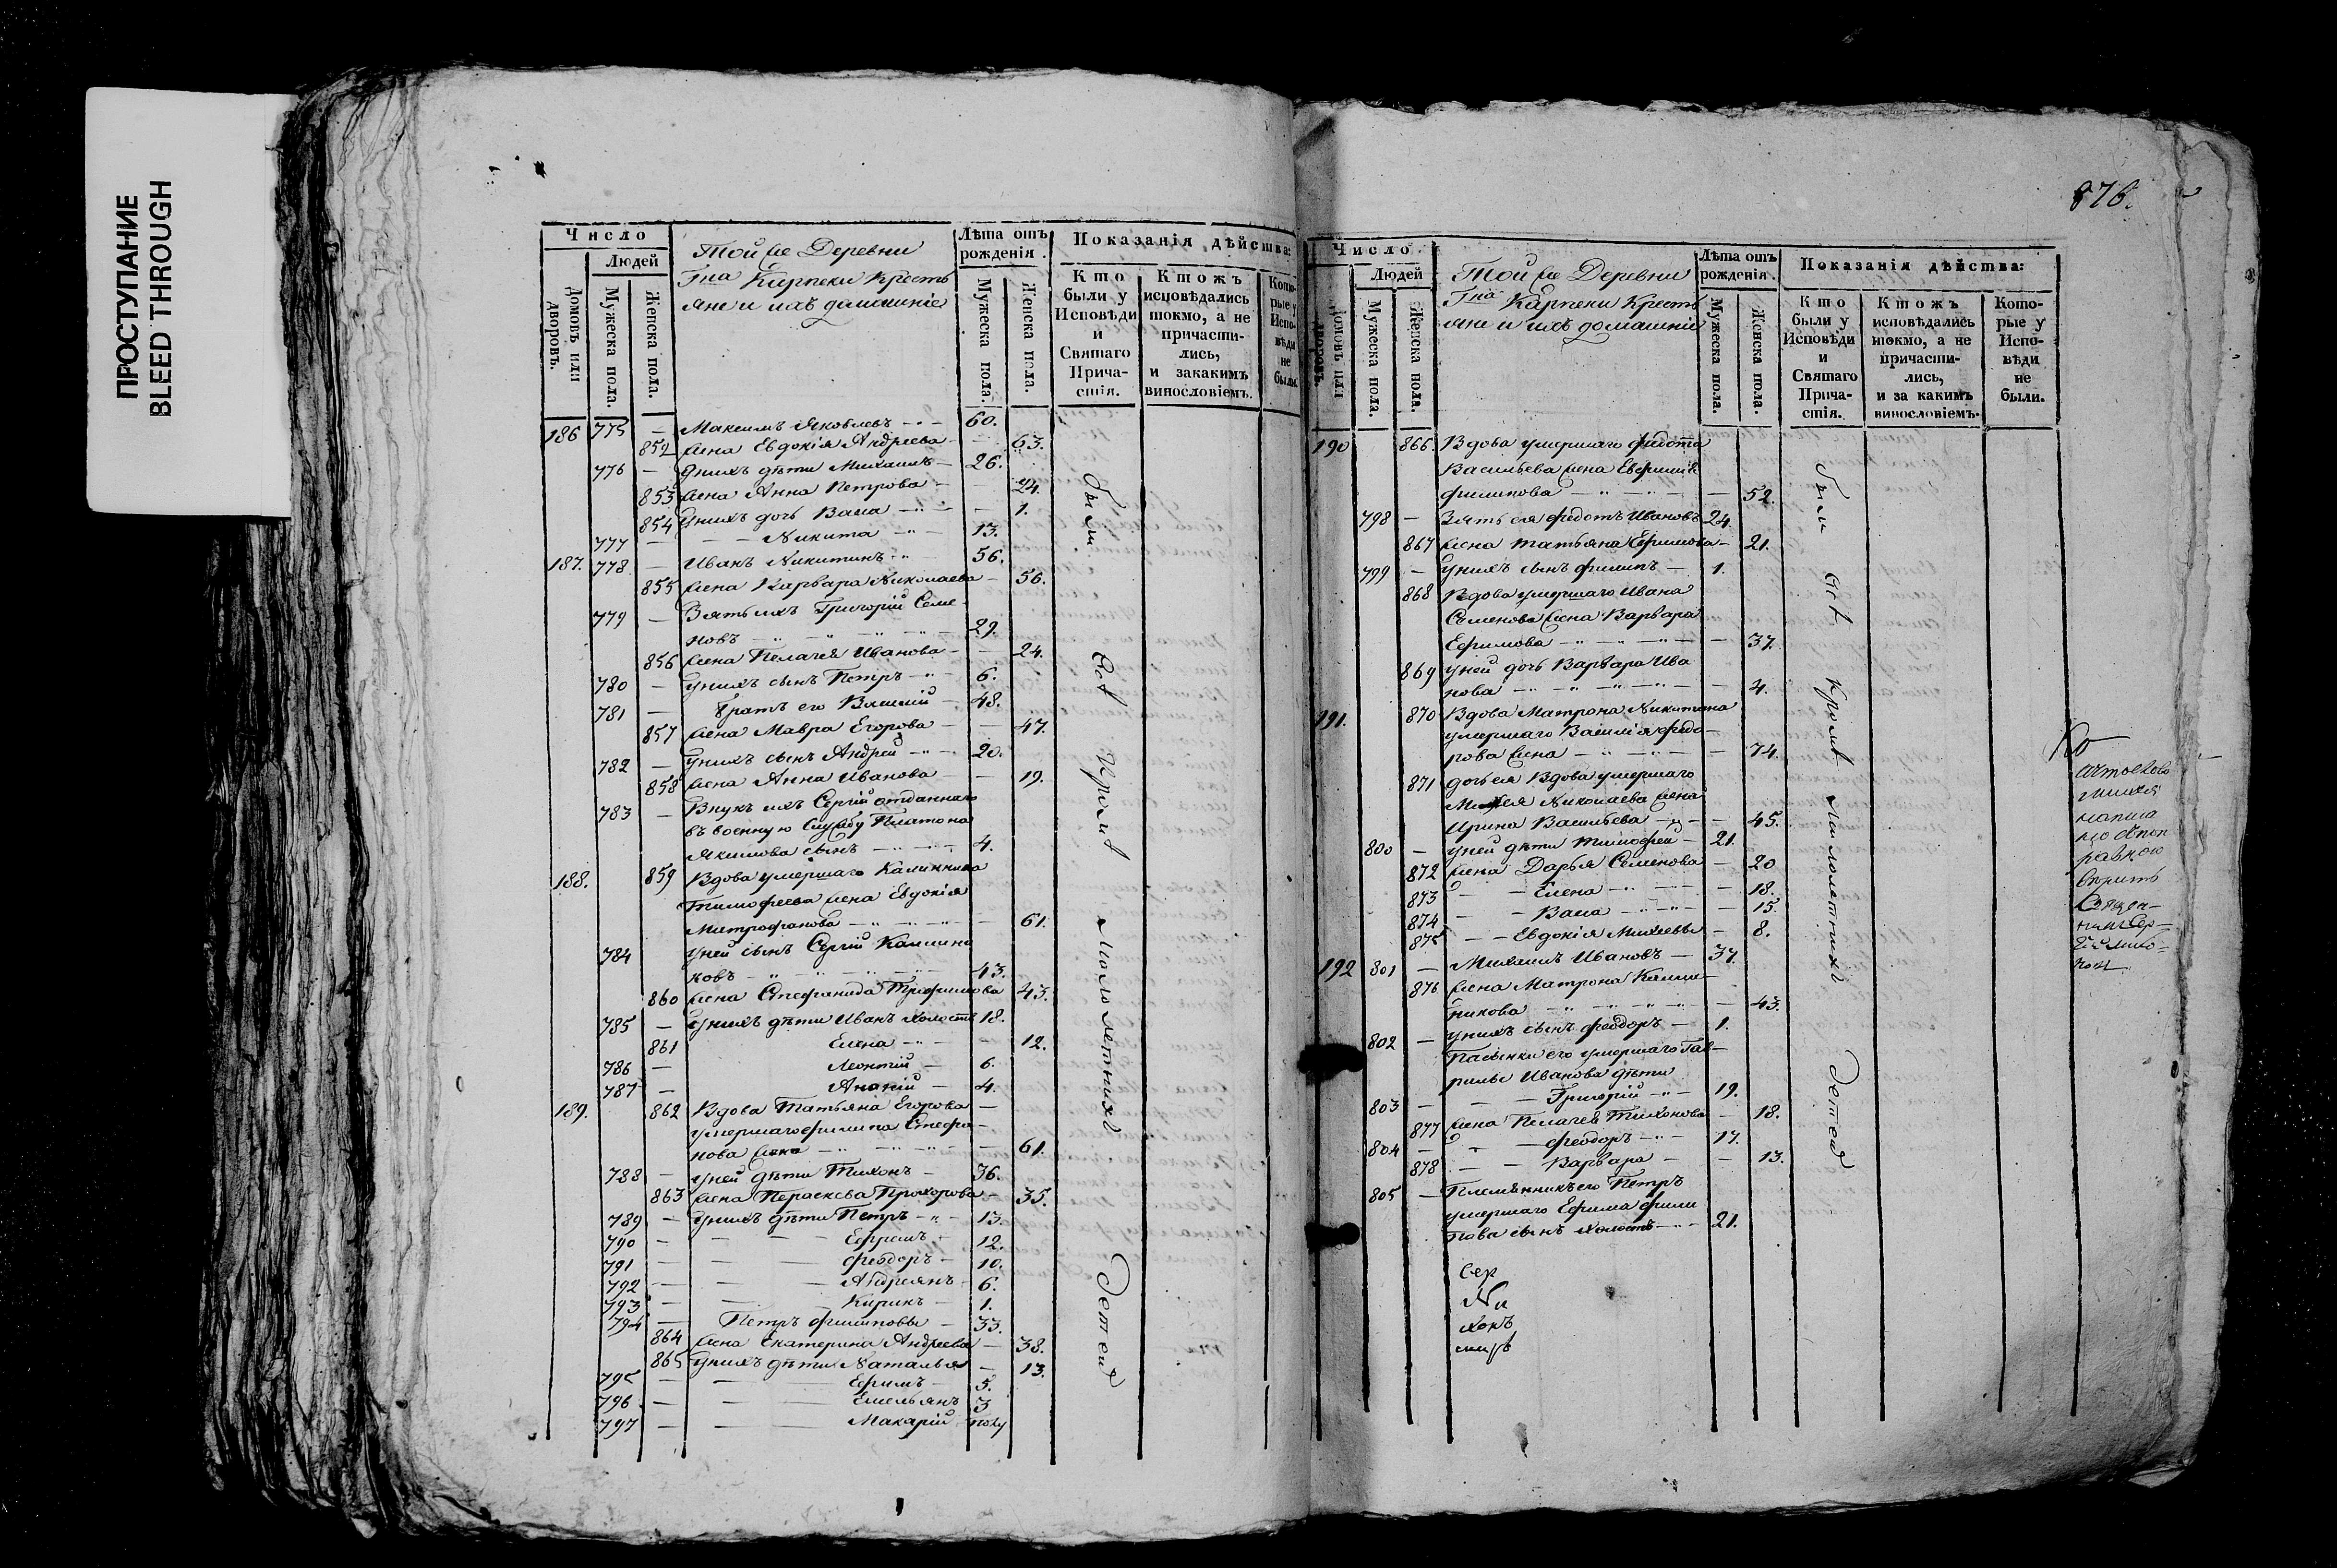 ПРОСТУПАНИЕ
BLEED THROUGH
Число
Людей
Домовъ или дворовъ.
Мужеска пола.
Женска пола.
Той же Деревни
Гна Карпеки Кресть
яне и ихъ домашніе
Лѣта отъ рожденія.
Мужеска пола.
Женска пола.
Показанія дѣйства:
Кто были у Исповѣди и Святаго Прича-стія.
Ктожъ исповѣдались токмо, а не причасти-лись, и закакимъ винословіемъ.
Кото-рые у Испо-вѣди не были.
186 775 — Максимъ Яковлевъ — 60.
852 жена Евдокія Андреева — 63.
776 — Унихъ дѣти Михаилъ — 26.
853 жена Анна Петрова — 24.
854 Унихъ дочь Васа — 1.
777 — Никита — 13.
187. 778 — Иванъ Никитинъ 56.
855 жена Варвара Николаева — 56.
779 — Зять ихъ Григорій Семе-
новъ — 29.
856 жена Пелагея Иванова — 24.
780 — Унихъ сынъ Петръ — 6.
781 — братъ его Василій — 48.
857 жена Мавра Егорова — 47.
782 — Унихъ сынъ Андрей — 20.
858 жена Анна Иванова — 19.
783 — Внукъ ихъ Сергій отданнаго
въ военную службу Платона
Якимова сынъ — 4.
188. 859 Вдова умершаго Калинника
Тимофеева жена Евдокія
Митрофанова — 61.
784 уней сынъ Сергій Калинни
ковъ — 43.
860 жена Стефанида Трофимова 43.
785 — Унихъ дѣти Иванъ холостъ 18.
861 Елена — 12.
786 — Леонтій — 6.
787 — Ананій — 4.
189. 862 Вдова Татьяна Егорова —
умершаго Филипа Стефа-
нова жена — 61.
788 — уней дѣти Тихонъ — 36.
863 жена Пераскева Прохорова — 35.
789 — Унихъ дѣти Петръ — 13.
790 — Ефремъ 12.
791 — Феодоръ — 10.
792 — Андреянъ — 6.
793 — Кирикъ — 1.
794 — Петръ Филиповъ — 33.
864 жена Екатерина Андреева — 38.
865 Унихъ дѣти Наталья — 13.
795 — Ефимъ — 5.
796 — Емельянъ 3
797 — Макарій полу
были всѣ кромѣ малолетнихъ детей
876.
Число
Людей
Домовъ или дворовъ.
Мужеска пола.
Женска пола.
Той же Деревни
Гна Карпеки Кресть
яне и ихъ домашніе
Лѣта отъ рожденія.
Мужеска пола.
Женска пола.
Показанія дѣйства:
Кто были у Исповѣди и Святаго Прича-стія.
Ктожъ исповѣдались токмо, а не причасти-лись, и за какимъ винословіемъ.
Кото-рые у Испо-вѣди не были.
190 866. Вдова умершаго Федота
Васильева жена Евфимія
Филипова — 52.
798 — Зять ея Федотъ Ивановъ 24.
867 жена Татьяна Ефимова — 21.
799 — Унихъ сынъ Филипъ — 1.
868 Вдова умершаго Ивана
Семенова жена Варвара
Ефимова — 37.
869 уней дочь Варвара Ива
нова — 4.
191. 870 Вдова Матрона Никитина
умершаго Василія Федо-
рова жена — 74.
871 дочь ея Вдова умершаго
Михея Николаева жена
Ирина Васильева — 45.
800 — уней дѣти Тимофей — 21.
872 жена Дарья Семенова — 20
873 — Елена — 18.
874 — Васа — 15.
875 — Евдокія Михеевы — 8.
192 801 — Михаилъ Ивановъ — 37.
876 жена Матрона Калин-
никова — 43.
802 — унихъ сынъ Феодоръ — 1.
Пасынки его умершаго Гав-
рилы Иванова дѣти
803 — Григорій — 19.
877 жена Пелагея Тихонова — 18.
804 — Феодоръ — 17.
878 — Варвара — 13.
805 — Племянникъ его Петръ
умершаго Ефима Фили
пова сынъ холостъ — 21.
Сер
Ни
хонъ
были всѣ кромѣ малолетнихъ детей
Ко